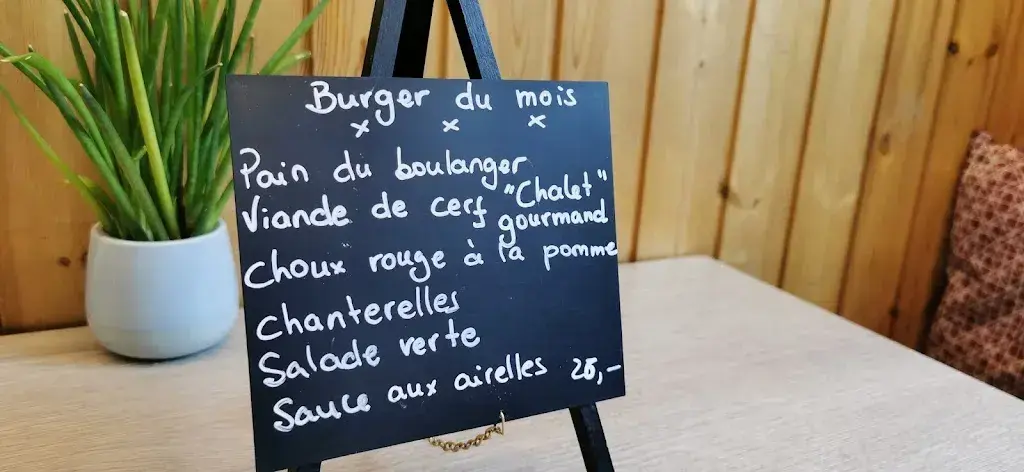 Burger du mois
x x x
Pain du boulanger
Viande de cerf "Chalet"
gourmand
Choux rouge à la pomme
Chanterelles
Salade verte
Sauce aux airelles